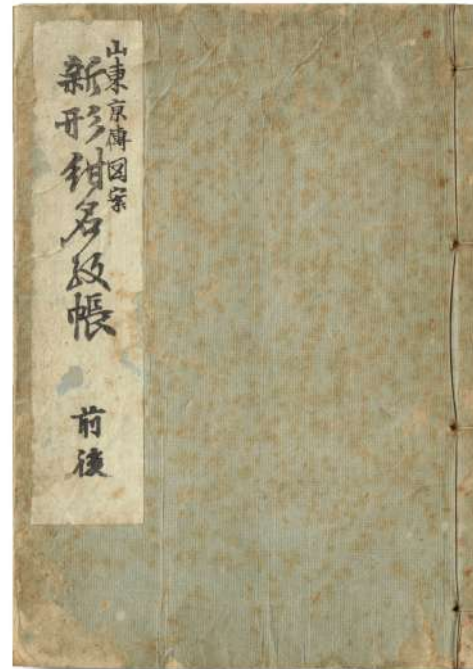 山東京傳図案
新形紺名紋帳
前後